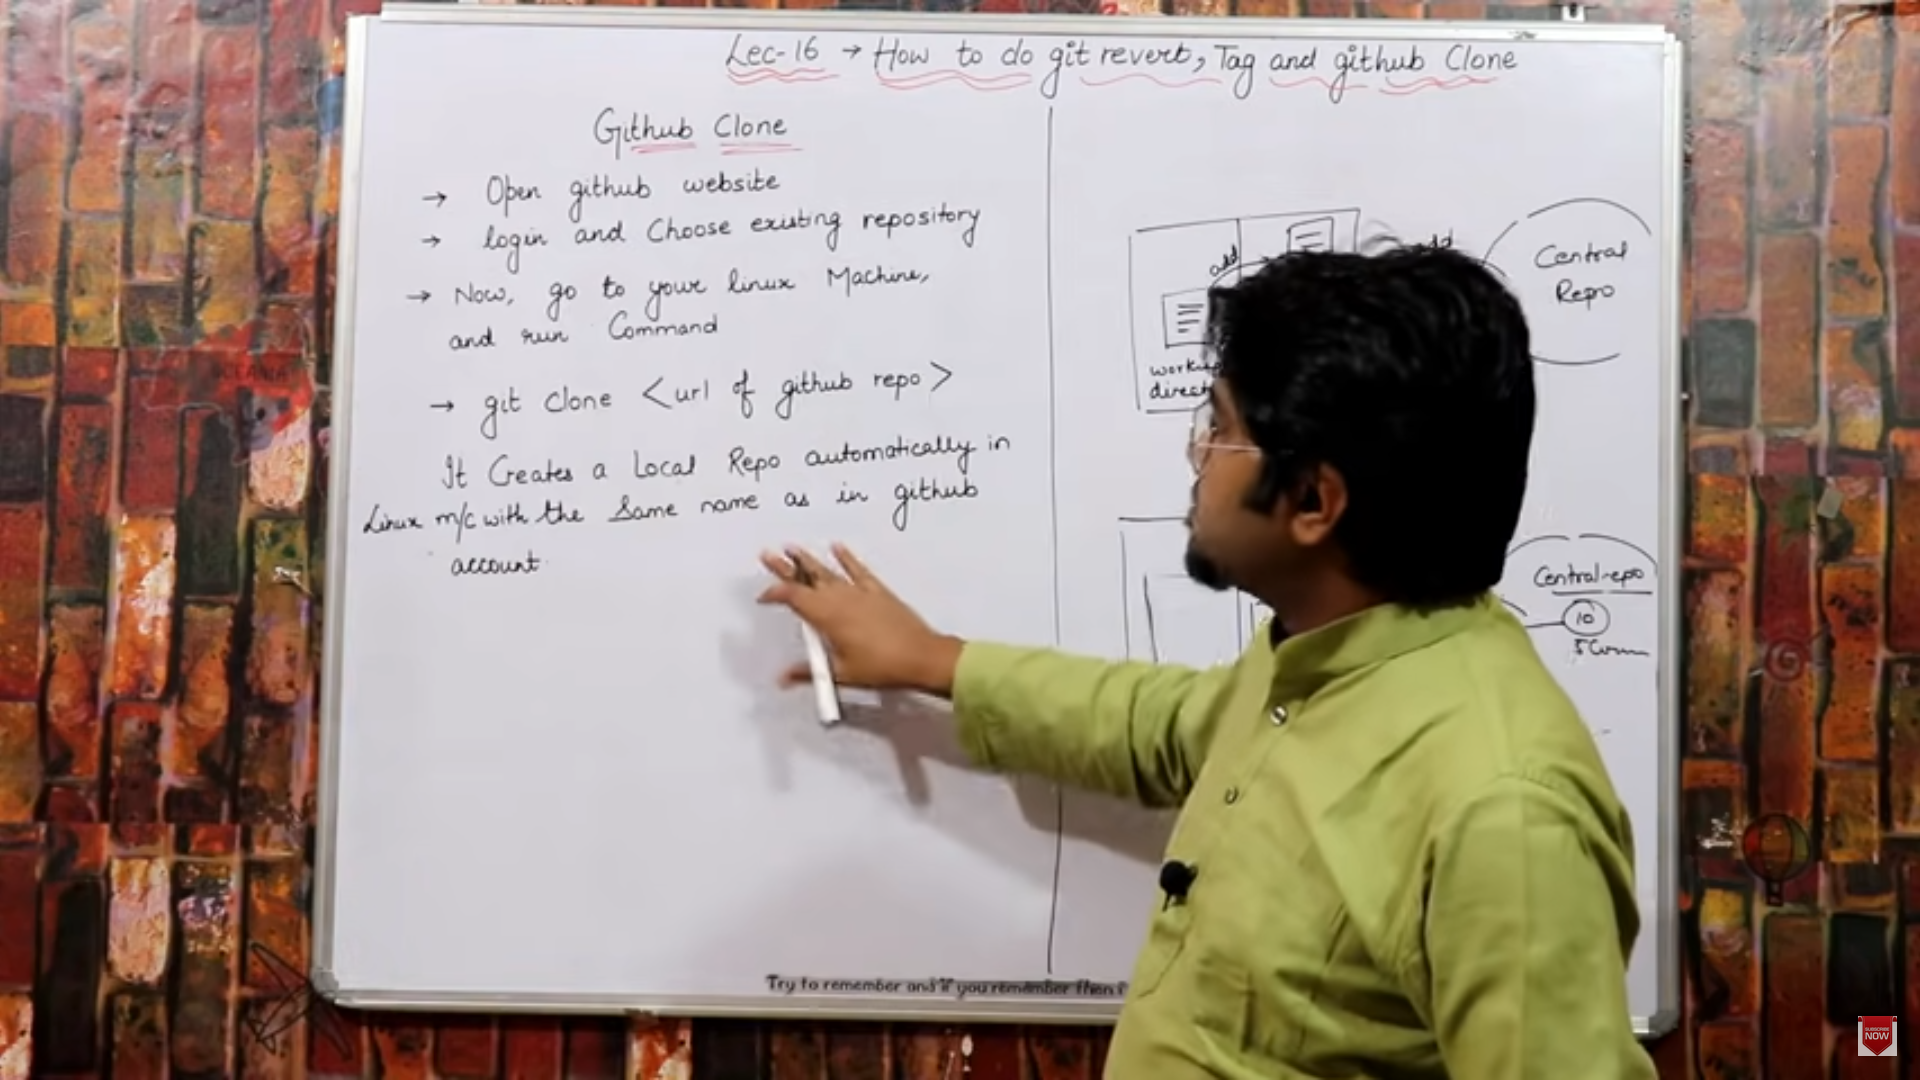 Lec-16 → How to do git revert, Tag and github Clone
Github Clone
→ Open github website
→ login and Choose existing repository
→ Now, go to your linux Machine,
and run Command
→ git clone <url of github repo>
It Creates a Local Repo automatically in
Linux m/c with the Same name as in github
account.
add
add
Central
Repo
Central-repo
10
Try to remember and if you remember then
SUBSCRIBE
NOW
OCEANIA